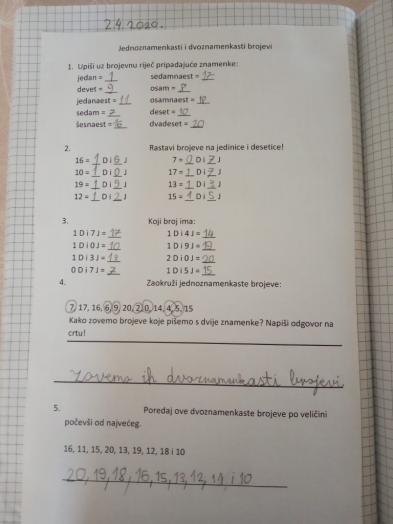 2.4.2020.
Jednoznamenkasti i dvoznamenkasti brojevi
1. Upiši uz brojevnu riječ pripadajuće znamenke:
jedan = 1 sedamnaest = 17
devet = 9 osam = 8
jedanaest = 11 osamnaest = 18
sedam = 7 deset = 10
šesnaest = 16 dvadeset = 20
2. Rastavi brojeve na jedinice i desetice!
16 = 1 D i 6 J 7 = 0 D i 7 J
10 = 1 D i 0 J 17 = 1 D i 7 J
19 = 1 D i 9 J 13 = 1 D i 3 J
12 = 1 D i 2 J 15 = 1 D i 5 J
3. Koji broj ima:
1 D i 7 J = 17 1 D i 4 J = 14
1 D i 0 J = 10 1 D i 9 J = 19
1 D i 3 J = 13 2 D i 0 J = 20
0 D i 7 J = 7 1 D i 5 J = 15
4. Zaokruži jednoznamenkaste brojeve:
7, 17, 16, 6, 9, 20, 2, 0, 14, 4, 5, 15
Kako zovemo brojeve koje pišemo s dvije znamenke? Napiši odgovor na
crtu!
zovemo ih dvoznamenkasti brojevi
5. Poredaj ove dvoznamenkaste brojeve po veličini
počevši od najvećeg.
16, 11, 15, 20, 13, 19, 12, 18 i 10
20, 19, 18, 16, 15, 13, 12, 11, i 10